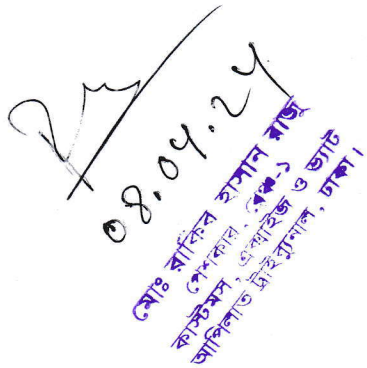 08.04.24
মোঃ রাকিব হাসান রাজু
পেশকার, বেঞ্চ-১
কাস্টমস, এক্সাইজ ও ভ্যাট
আপিলাত ট্রাইব্যুনাল, ঢাকা।